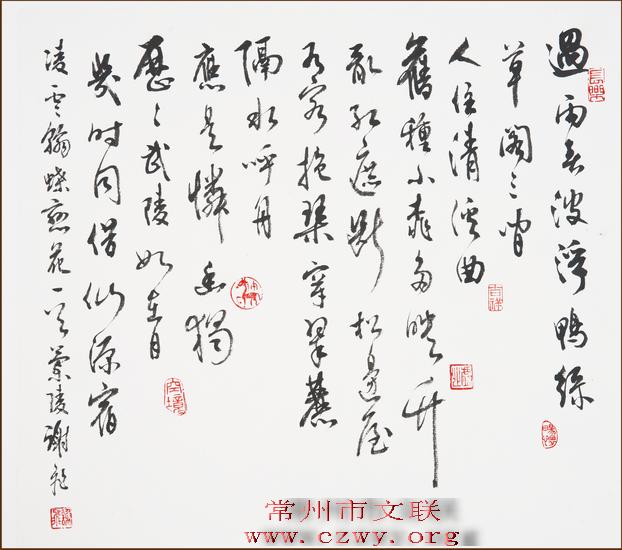 過雨春波浮鴨綠
草閣三間
人住清溪曲
舊種小桃多映竹
亂紅遮斷松邊屋
有客抱琴穿翠麓
隔水呼舟
應是憐幽獨
歷〻武陵如在目
幾時同借仙源宿
凌雲翰蝶戀花一首蘭陵謝
常州市文联
www.czwy.org